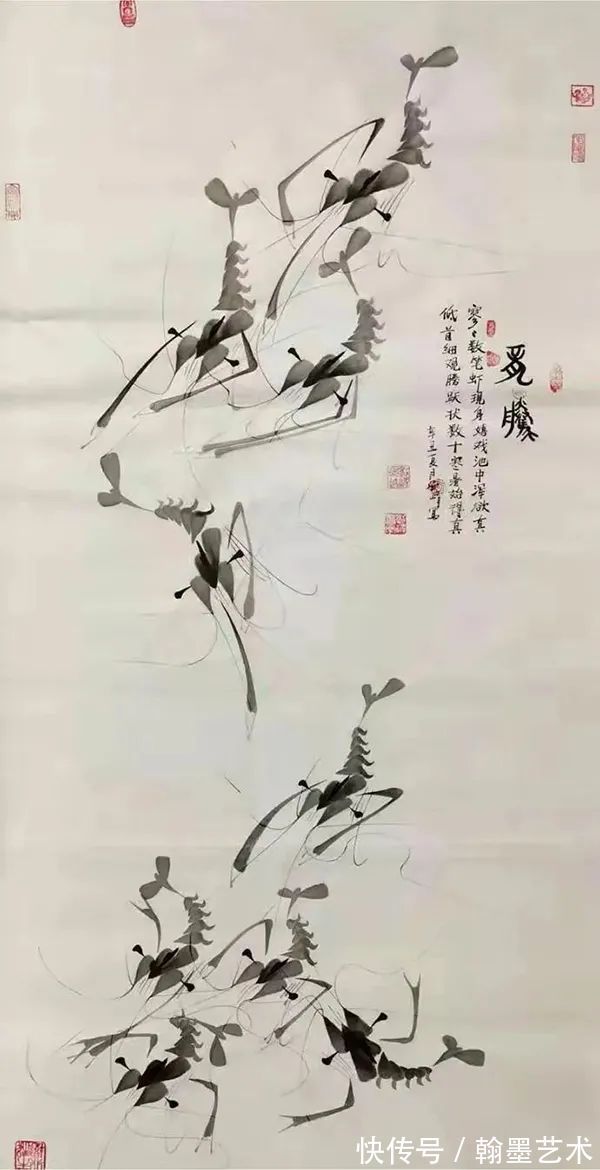 腾
寥々数笔虾现身嬉戏池中浑欲真
低首细观腾跃状数十寒暑始得真
辛丑夏月写
快传号 / 翰墨艺术